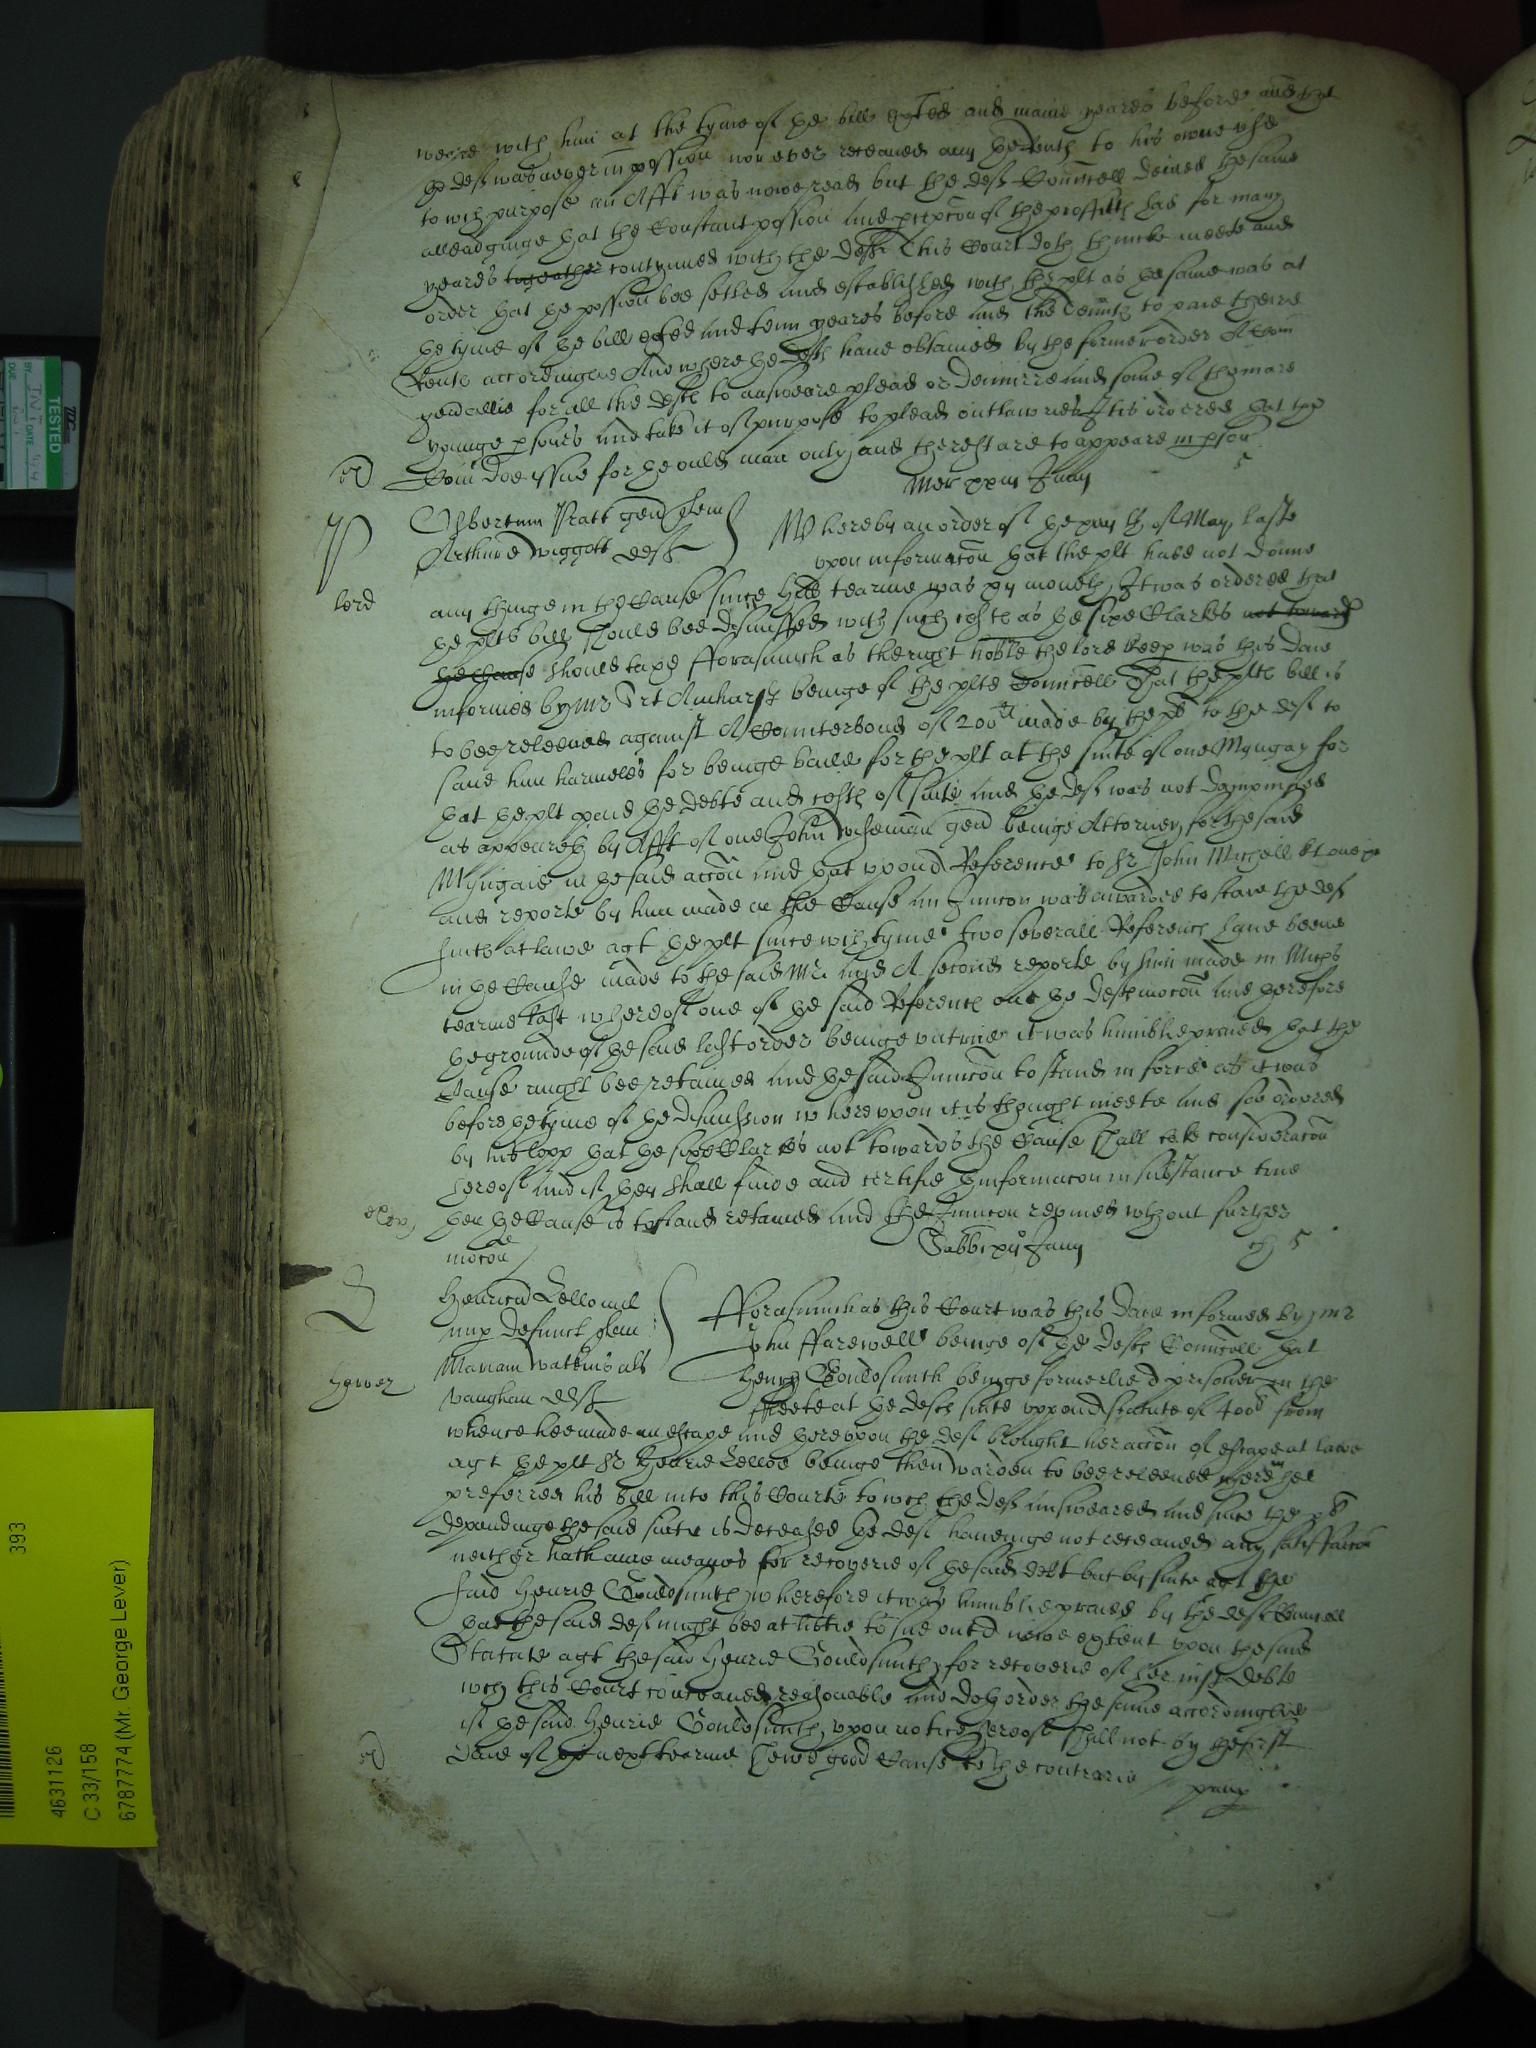 weare with him at the tyme of the bill exhited and manie yeares before and that
the deft was never in possion nor ever receaued any the Rents to his owne vse
to wch purpose an Afft was nowe read but the defts Councell denied the same
alleadginge that the Constant possion and pcepcon of the proffitts had for many
yeares togeather contynued with the defts This Court doth thincke meete and
order that the possion bee setled and established with the plt as the same was at
the tyme of the bill exhited and tenn yeares before and the Tennts to paie theire
Rents accordinglie And where the defts haue obtained by the former order A Com
gendallie for all the defts to answeare plead or demurre and some of them are
younge psons and take it of purpose to plead outlawries It is ordered that the
Com doe yssue for the ould man only and the rest are to appeare in pson
Mer Juny
Osbertum Pratt gen quem
Arthure Wiggott deft
Whereby an order of the of May laste
vpon informacon that the plt had not donne
lord
any thinge in the Cause since Hill tearme was xij moneth It was ordered that
the plts bill should bee dismissed with such costs as the sixe Clarkes not towards
the Cause should taxe Fforasmuch as the right hoble the lord keep was this daie
informed by Mr Amhurst beinge of the plts Councell That the plts bill is
to bee releeued against A Counterbond of 200li made by the plt to the deft to
saue him harmeles for beinge baile for the plt at the suite of one Myngay for
that the plt paid the debte and costs of suite and the deft was not dampnified
as appeareth by Afft of one John Wiseman gen beinge Attorney for the said
Myngaie in the said accon and that vppon A Reference to Sr John Mitchell kt one
and reporte by him made in the Cause an Junccon was awarded to staie the defts
suite at lawe agt the plt since wch tyme two severall References haue beene
in the Cause made to the said Mr and A second reporte by him made in Michs
tearme last whereof one of the said References on the defts mocon and therefore
the grounde of the said last order beinge vntrue it was humblie praied that the
Cause might bee retained and the said Junccon to stand in force as it was
before the tyme of the dismission wherevpon it is thought meete and soe ordered
by his lopp that the sixe Clarkes not towards the Cause shall take consideracon
hereof and if they shall finde and certifie thinformacon in substance true
then the Cause is to stand retained and the Junccon revived wthout further
mocon
Sabbi Juny
Henricu Lello mil
nup defunct quer
Mariam Watkins als
Vaughan deft
Fforasmuch as this Court was this daie informed by Mr
John Ffarewell beinge of the defts Councell that
Henry Gouldsmith beinge formerlie A prisoner in the
Ffleete at the defts suite vppon A statute of 400li from
whence hee made an escape and therevpon the deft brought her accon of escape at lawe
agt the plt Sr Henrie Lelloe beinge then warden to bee releeued wherein hee
preferred his bill into this Courte to wch the deft answeared and since the plt
dependinge the said suite is deceased the deft haueinge not receaued any satisfaccon
neither hath anie meanes for recouerie of the said debt but by suite agt the
said Henrie Gouldsmith wherefore it was humblie praied by the defts Councell
that the said deft might bee at libtie to sue out A newe extent vpon the said
Statute agt the said Henrie Gouldsmith for recouerie of her iust debte
wch this Court conceaued reasonable and doth order the same accordinglie
if the said Henrie Gouldsmith vpon notice hereof shall not by the first
daie of the next tearme shewe good Cause to the contrarie
TESTED
DATE
BY
DUE
393
4631126
C 33/158
6787774 (Mr. George Lever)